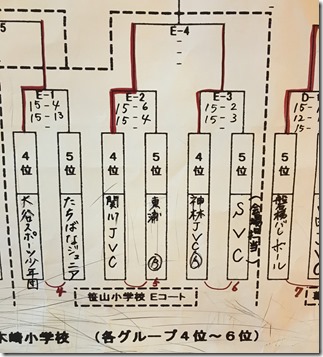 5
E-4
E-1
15-4
15-13
E-2
15-6
15-4
E-3
15-2
15-3
D-
15
12-
15-
4位
5位
4位
5位
4位
5位
4位
大谷スポーツ少年団
たちばなジュニア
関川JVC
東浦Ⓑ
神林JVCⒶ
SVC
4
5
6
7
笹山小学校 Eコート
木崎小学校 (各グループ4位~6位)